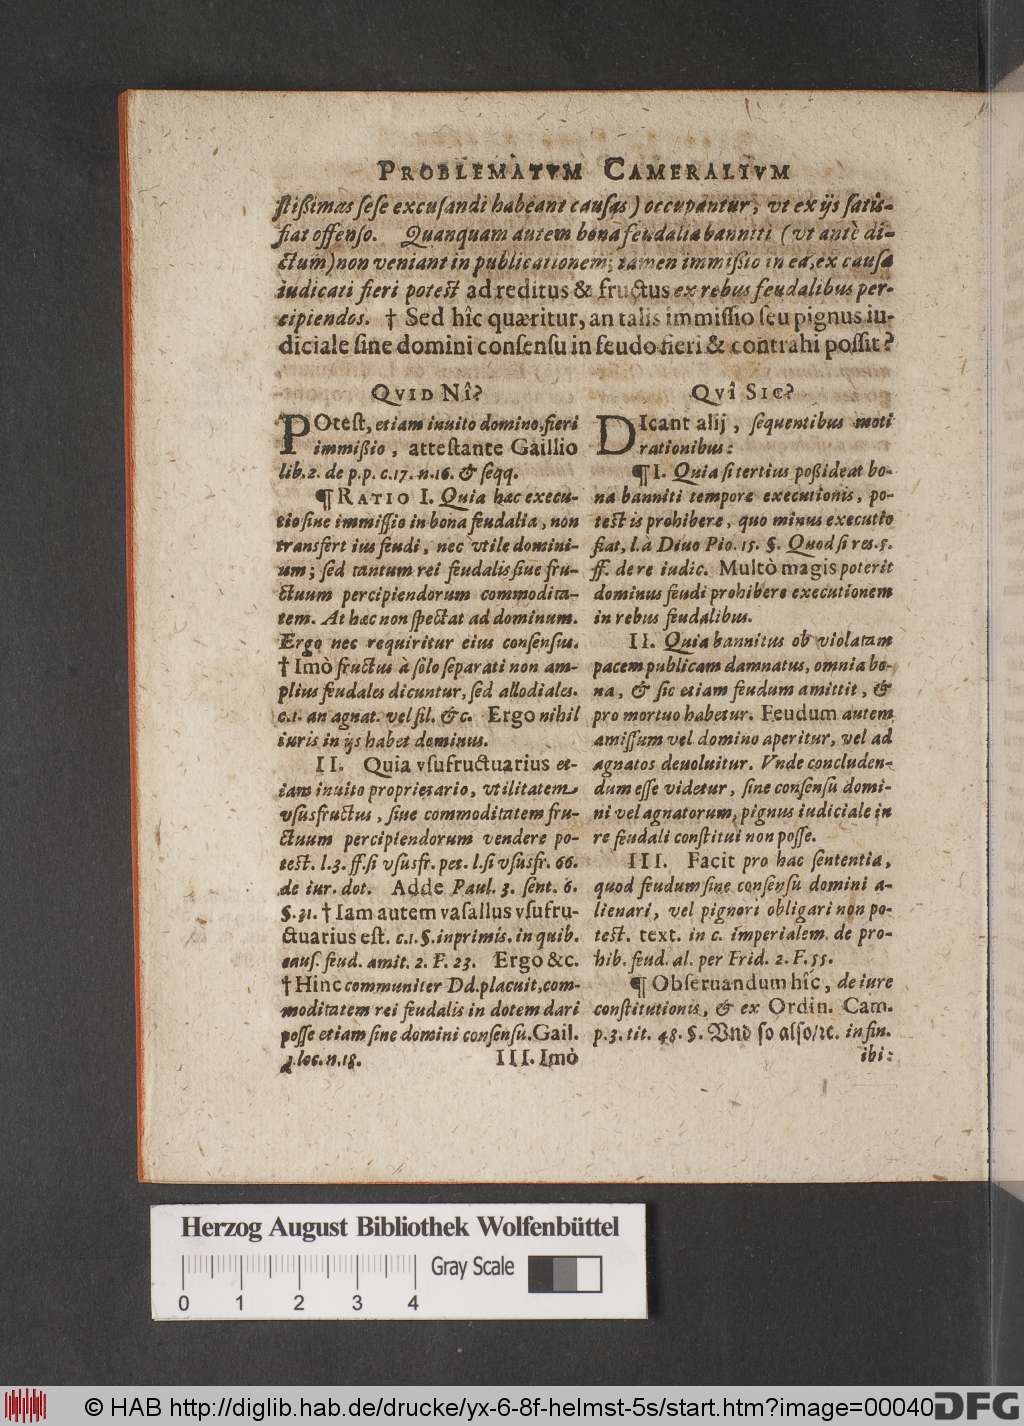 PROBLEMATVM CAMERALIVM
stißimas sese excusandi habeant causas) occupantur, vt ex ijs satis-
fiat offenso. Quanquam autem bona feudalia banniti (vt antè di-
ctum) non veniant in publicationem; tamen immißio in ea, ex causa
iudicati fieri potest ad reditus & fructus ex rebus feudalibus per-
cipiendos. † Sed hîc quæritur, an talis immissio seu pignus iu-
diciale sine domini consensu in feudo fieri & contrahi possit?
QVID NÎ?
POtest, etiam inuito domino, fieri
immißio, attestante Gaillio
lib. 2. de p.p. c. 17. n. 16. & seqq.
¶ RATIO I. Quia hæc execu-
tio siue immissio in bona feudalia, non
transfert ius feudi, nec vtile domini-
um; sed tantum rei feudalis siue fru-
ctuum percipiendorum commodita-
tem. At hæc non spectat ad dominum.
Ergo nec requiritur eius consensus.
† Imò fructus à solo separati non am-
plius feudales dicuntur, sed allodiales.
c. 1. an agnat. vel fil. &c. Ergo nihil
iuris in ijs habet dominus.
II. Quia vsufructuarius et-
iam inuito proprietario, vtilitatem
vsusfructus, siue commoditatem fru-
ctuum percipiendorum vendere po-
test. l. 3. ff. si vsusfr. pet. l. si vsusfr. 66.
de iur. dot. Adde Paul. 3. sent. 6.
§. 31. † Iam autem vasallus vsufru-
ctuarius est. c. 1. §. inprimis. in quib.
caus. feud. amit. 2. F. 23. Ergo &c.
† Hinc communiter Dd. placuit, com-
moditatem rei feudalis in dotem dari
posse etiam sine domini consensu. Gail.
d. loc. n. 18.
III. Imò
QVÎ SIC?
DIcant alij, sequentibus moti
rationibus:
¶ I. Quia si tertius poßideat bo-
na banniti tempore executionis, po-
test is prohibere, quo minus executio
fiat, l. à Diuo Pio. 15. §. Quod si res. 5.
ff. de re iudic. Multò magis poterit
dominus feudi prohibere executionem
in rebus feudalibus.
II. Quia bannitus ob violatam
pacem publicam damnatus, omnia bo-
na, & sic etiam feudum amittit, &
pro mortuo habetur. Feudum autem
amissum vel domino aperitur, vel ad
agnatos deuoluitur. Vnde concluden-
dum esse videtur, sine consensu domi-
ni vel agnatorum, pignus iudiciale in
re feudali constitui non posse.
III. Facit pro hac sententia,
quod feudum sine consensu domini a-
lienari, vel pignori obligari non po-
test. text. in c. imperialem. de pro-
hib. feud. al. per Frid. 2. F. 55.
¶ Obseruandum hîc, de iure
constitutionis, & ex Ordin. Cam.
p. 3. tit. 48. §. Vnd so also/ꝛc. in fin.
ibi:
Herzog August Bibliothek Wolfenbüttel
Gray Scale
0 1 2 3 4
© HAB http://diglib.hab.de/drucke/yx-6-8f-helmst-5s/start.htm?image=00040
DFG